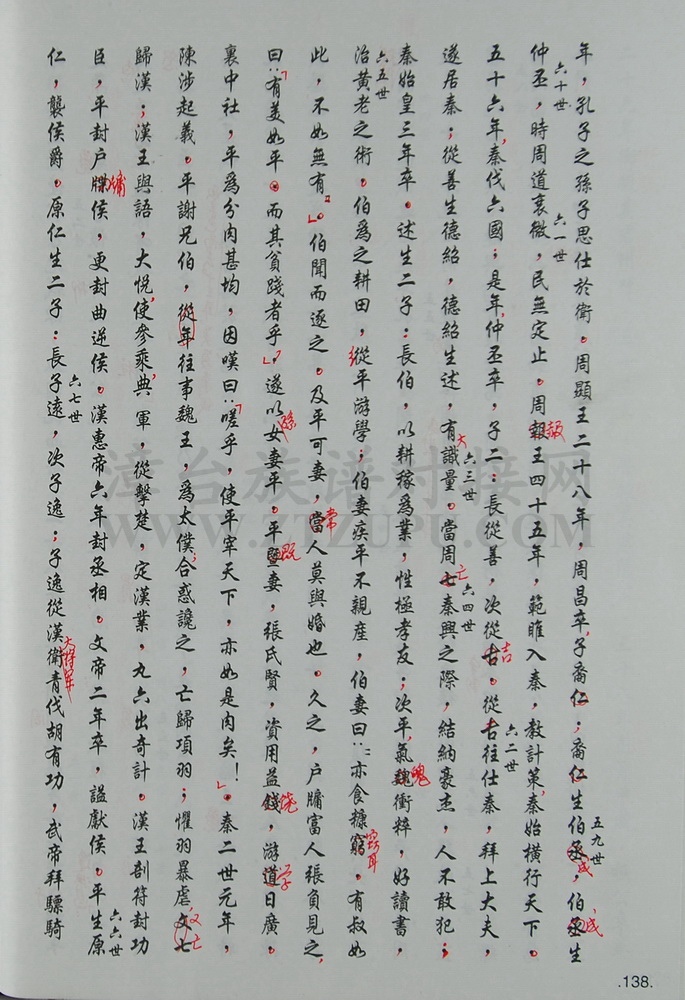 年，孔子之孫子思仕於衛。周顯王二十八年，周昌卒，子裔仁；裔仁生伯丞，伯丞生
五九世
成
成
仲丕，時周道衰微，民無定止。周報王四十五年，範睢入秦，教計策，秦始橫行天下。
六十世
六一世
赧
五十六年，秦伐六國；是年，仲丕卒，子二：長從善，次從古。從古往仕秦，拜上大夫，
六二世
吉
遂居秦；從善生德紹，德紹生述，有識量。當周七秦興之際，結納豪杰，人不敢犯；
六三世
大
亡
六四世
秦始皇三年卒。述生二子：長伯，以耕稼爲業，性極孝友；次平，氣魏衝粹，好讀書，
魄
六五世
治黃老之術。伯爲之耕田，縱平游學；伯妻疾平不親産，伯妻曰：“亦食糠窮。有叔如
窍耳
此，不如無有”。伯聞而逐之。及平可妻，當人莫與婚也。久之，户牖富人張負見之，
常
曰：“有美如平。而其貧踐者乎”，遂以女妻平。平暨妻，張氏賢，資用益錢，游道日廣。
孫
既
饒
学
裏中社，平爲分肉甚均，因嘆曰：“嗟乎，使平宰天下，亦如是肉矣！”。秦二世元年，
陳涉起義。平謝兄伯，從年往事魏王，爲太僕；合惑讒之，亡歸項羽；懼羽暴虐，文七
又亡
歸漢；漢王與語，大悦，使參乘，典軍，從擊楚，定漢業，九六出奇計。漢王剖符封功
臣，平封户牒侯，更封曲逆侯。漢惠帝六年封丞相。文帝二年卒，謚獻侯。平生原
牖
六六世
仁，襲侯爵。原仁生二子：長子遠，次子逸；子逸從漢衛青伐胡有功，武帝拜驃騎
六七世
大將軍
漳台族谱对接网
WWW.ZTZUPU.COM
.138.